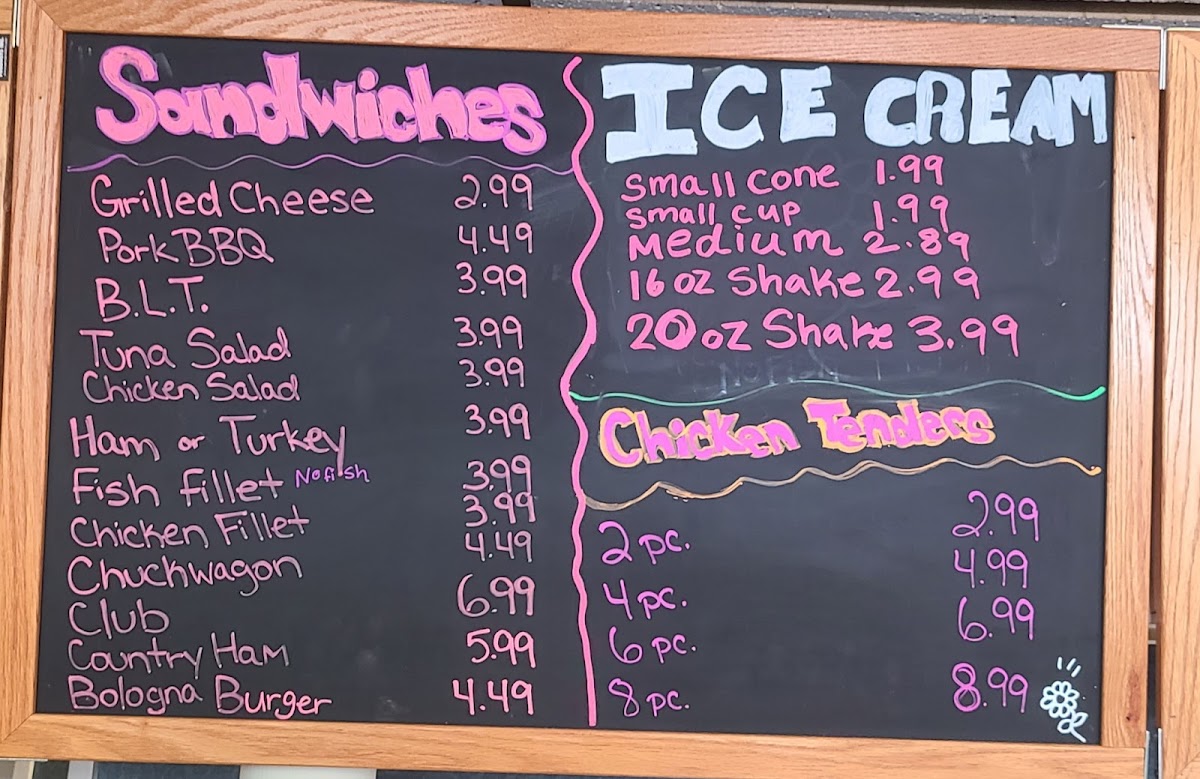 Sandwiches
Grilled Cheese 2.99
Pork BBQ 4.49
B.L.T. 3.99
Tuna Salad 3.99
Chicken Salad 3.99
Ham or Turkey 3.99
Fish fillet No fish 3.99
Chicken Fillet 3.99
Chuckwagon 4.49
Club 6.99
Country Ham 5.99
Bologna Burger 4.49
ICE CREAM
Small Cone 1.99
Small Cup 1.99
Medium 2.89
16 oz Shake 2.99
20 oz Shake 3.99
Chicken Tenders
2 pc. 2.99
4 pc. 4.99
6 pc. 6.99
8 pc. 8.99